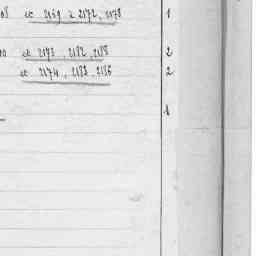 08 et 2169 à 2172, 2178 1
00 et 2173, 2182, 2185 2
et 2174, 2183, 2186 2
1